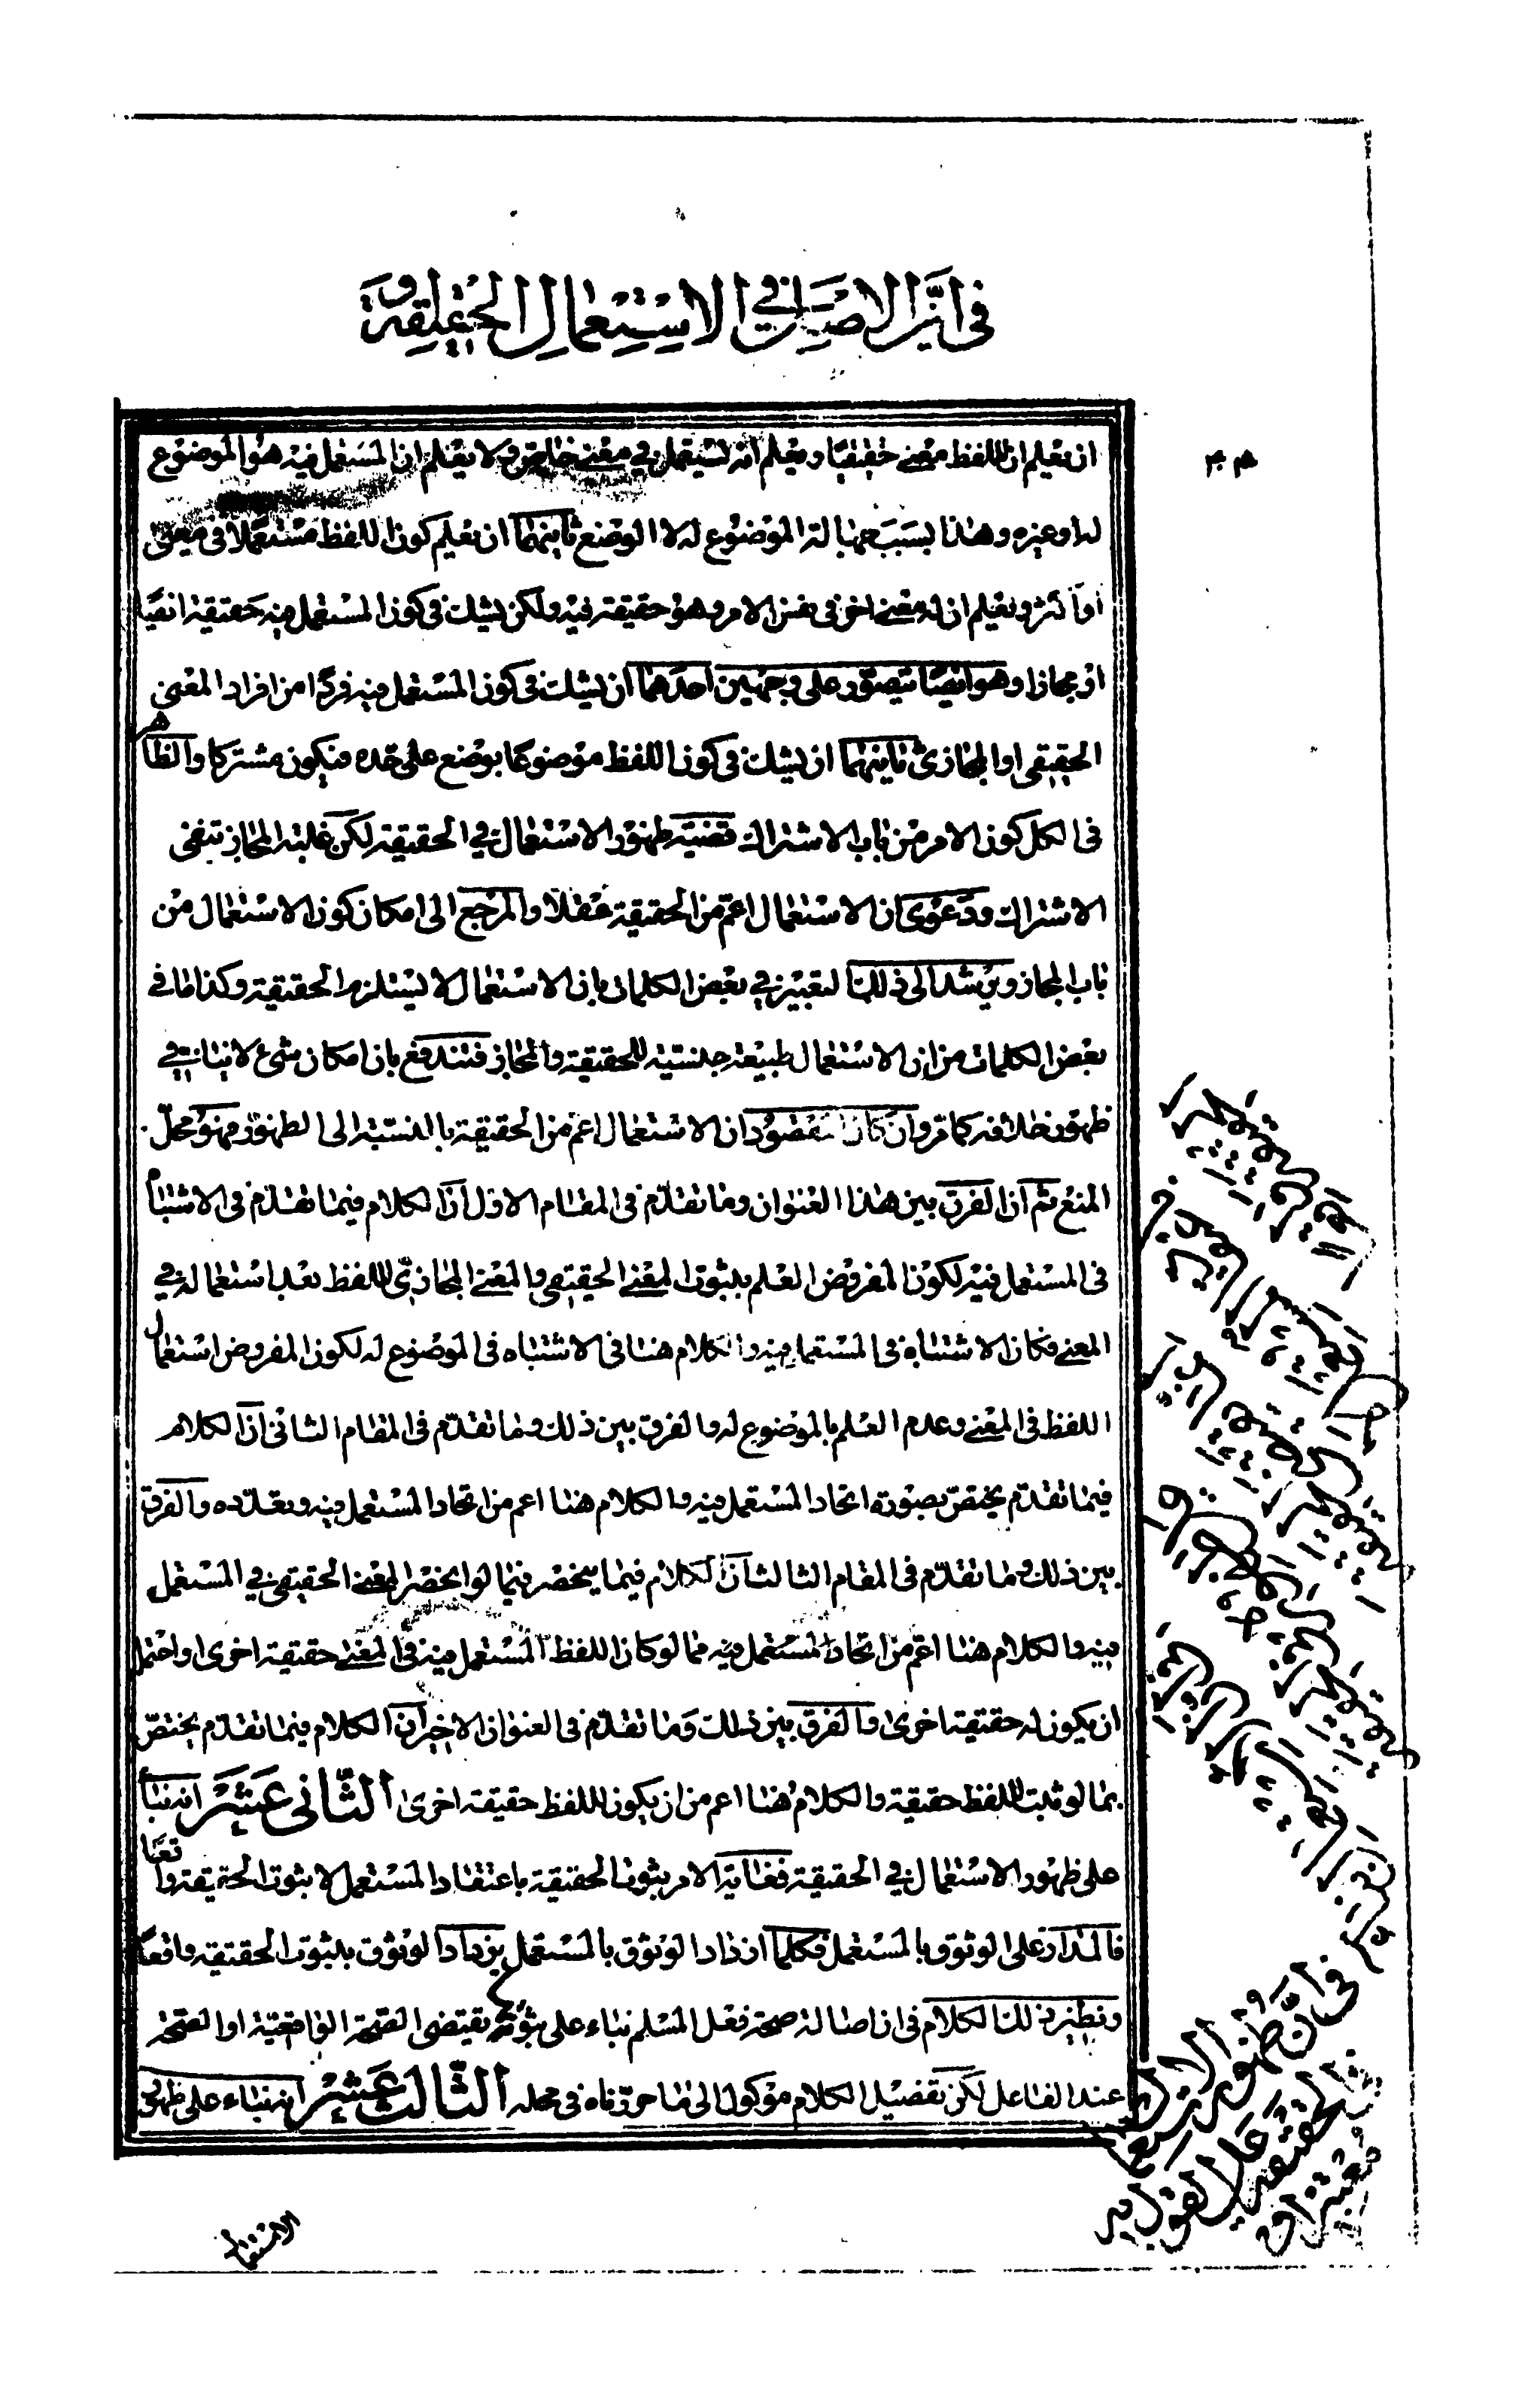 في ان الاصل في الاستعمال الحقيقة
ان يعلم ان للفظ معنى حقيقيا ويعلم انه استعمل في معنى خاص ولا يعلم ان المستعمل فيه هو الموضوع
له او غيره وهذا بسبب جهالة الموضوع له لا الوضع ثانيهما ان يعلم كون اللفظ مستعملا في معنى
او اكثر ويعلم ان له معنى اخر في نفس الامر وهو حقيقة فيه ولكن يشك في كون المستعمل فيه حقيقة ايضا
او مجازا وهو ايضا يتصور على وجهين احدهما ان يشك في كون المستعمل فيه فردا من افراد المعنى
الحقيقي او المجازي ثانيهما ان يشك في كون اللفظ موضوعا بوضع على حده فيكون مشتركا والظاهر
في الكل كون الامر من باب الاشتراك قضية ظهور الاستعمال في الحقيقة لكن غلبة المجاز تنفى
الاشتراك ودعوى ان الاستعمال اعم من الحقيقة عقلا والمرجع الى امكان كون الاستعمال من
باب المجاز ويرشد الى ذلك التعبير في بعض الكلمات بان الاستعمال لا يستلزم الحقيقة وكذا ما في
بعض الكلمات من ان الاستعمال طبيعة جنسية للحقيقة والمجاز فتندفع بان امكان شيء لا ينافي
ظهور خلافه كما مر وان كان المقصود ان الاستعمال اعم من الحقيقة بالنسبة الى الظهور فهو محل
المنع ثم ان الفرق بين هذا العنوان وما تقدم في المقام الاول ان الكلام فيما تقدم في الاشتباه
في المستعمل فيه لكون المفروض العلم بثبوت المعنى الحقيقي والمعنى المجازي للفظ بعد استعماله في
المعنى فكان الاشتباه في المستعمل فيه والكلام هنا في الاشتباه في الموضوع له لكون المفروض استعمال
اللفظ في المعنى وعدم العلم بالموضوع له والفرق بين ذلك وما تقدم في المقام الثاني ان الكلام
فيما تقدم يختص بصورة اتحاد المستعمل فيه والكلام هنا اعم من اتحاد المستعمل فيه وتعدده والفرق
بين ذلك وما تقدم في المقام الثالث ان الكلام فيما ينحصر فيما لو انحصر المعنى الحقيقي في المستعمل
فيه والكلام هنا اعم من اتحاد المستعمل فيه مما لو كان اللفظ المستعمل فيه في المعنى حقيقة اخرى او احتمل
ان يكون له حقيقة اخرى والفرق بين ذلك وما تقدم في العنوان الاخير ان الكلام فيما تقدم يختص
بما لو ثبت للفظ حقيقة والكلام هنا اعم من ان يكون للفظ حقيقة اخرى الثاني عشر انه بناء
على ظهور الاستعمال في الحقيقة فغاية الامر بثوت الحقيقة باعتقاد المستعمل لا بثوت الحقيقة واقعا
فالمدار على الوثوق بالمستعمل فكلما ازداد الوثوق بالمستعمل يزداد الوثوق بثبوت الحقيقة واقعا
ونظير ذلك الكلام في ان اصالة صحة فعل المسلم بناء على ثبوته يقتضى الصحة الواقعية او الصحة
عند الفاعل لكن تفصيل الكلام موكول الى ما حررناه في محله الثالث عشر انه بناء على ظهور
في ان ظهور الاستعمال